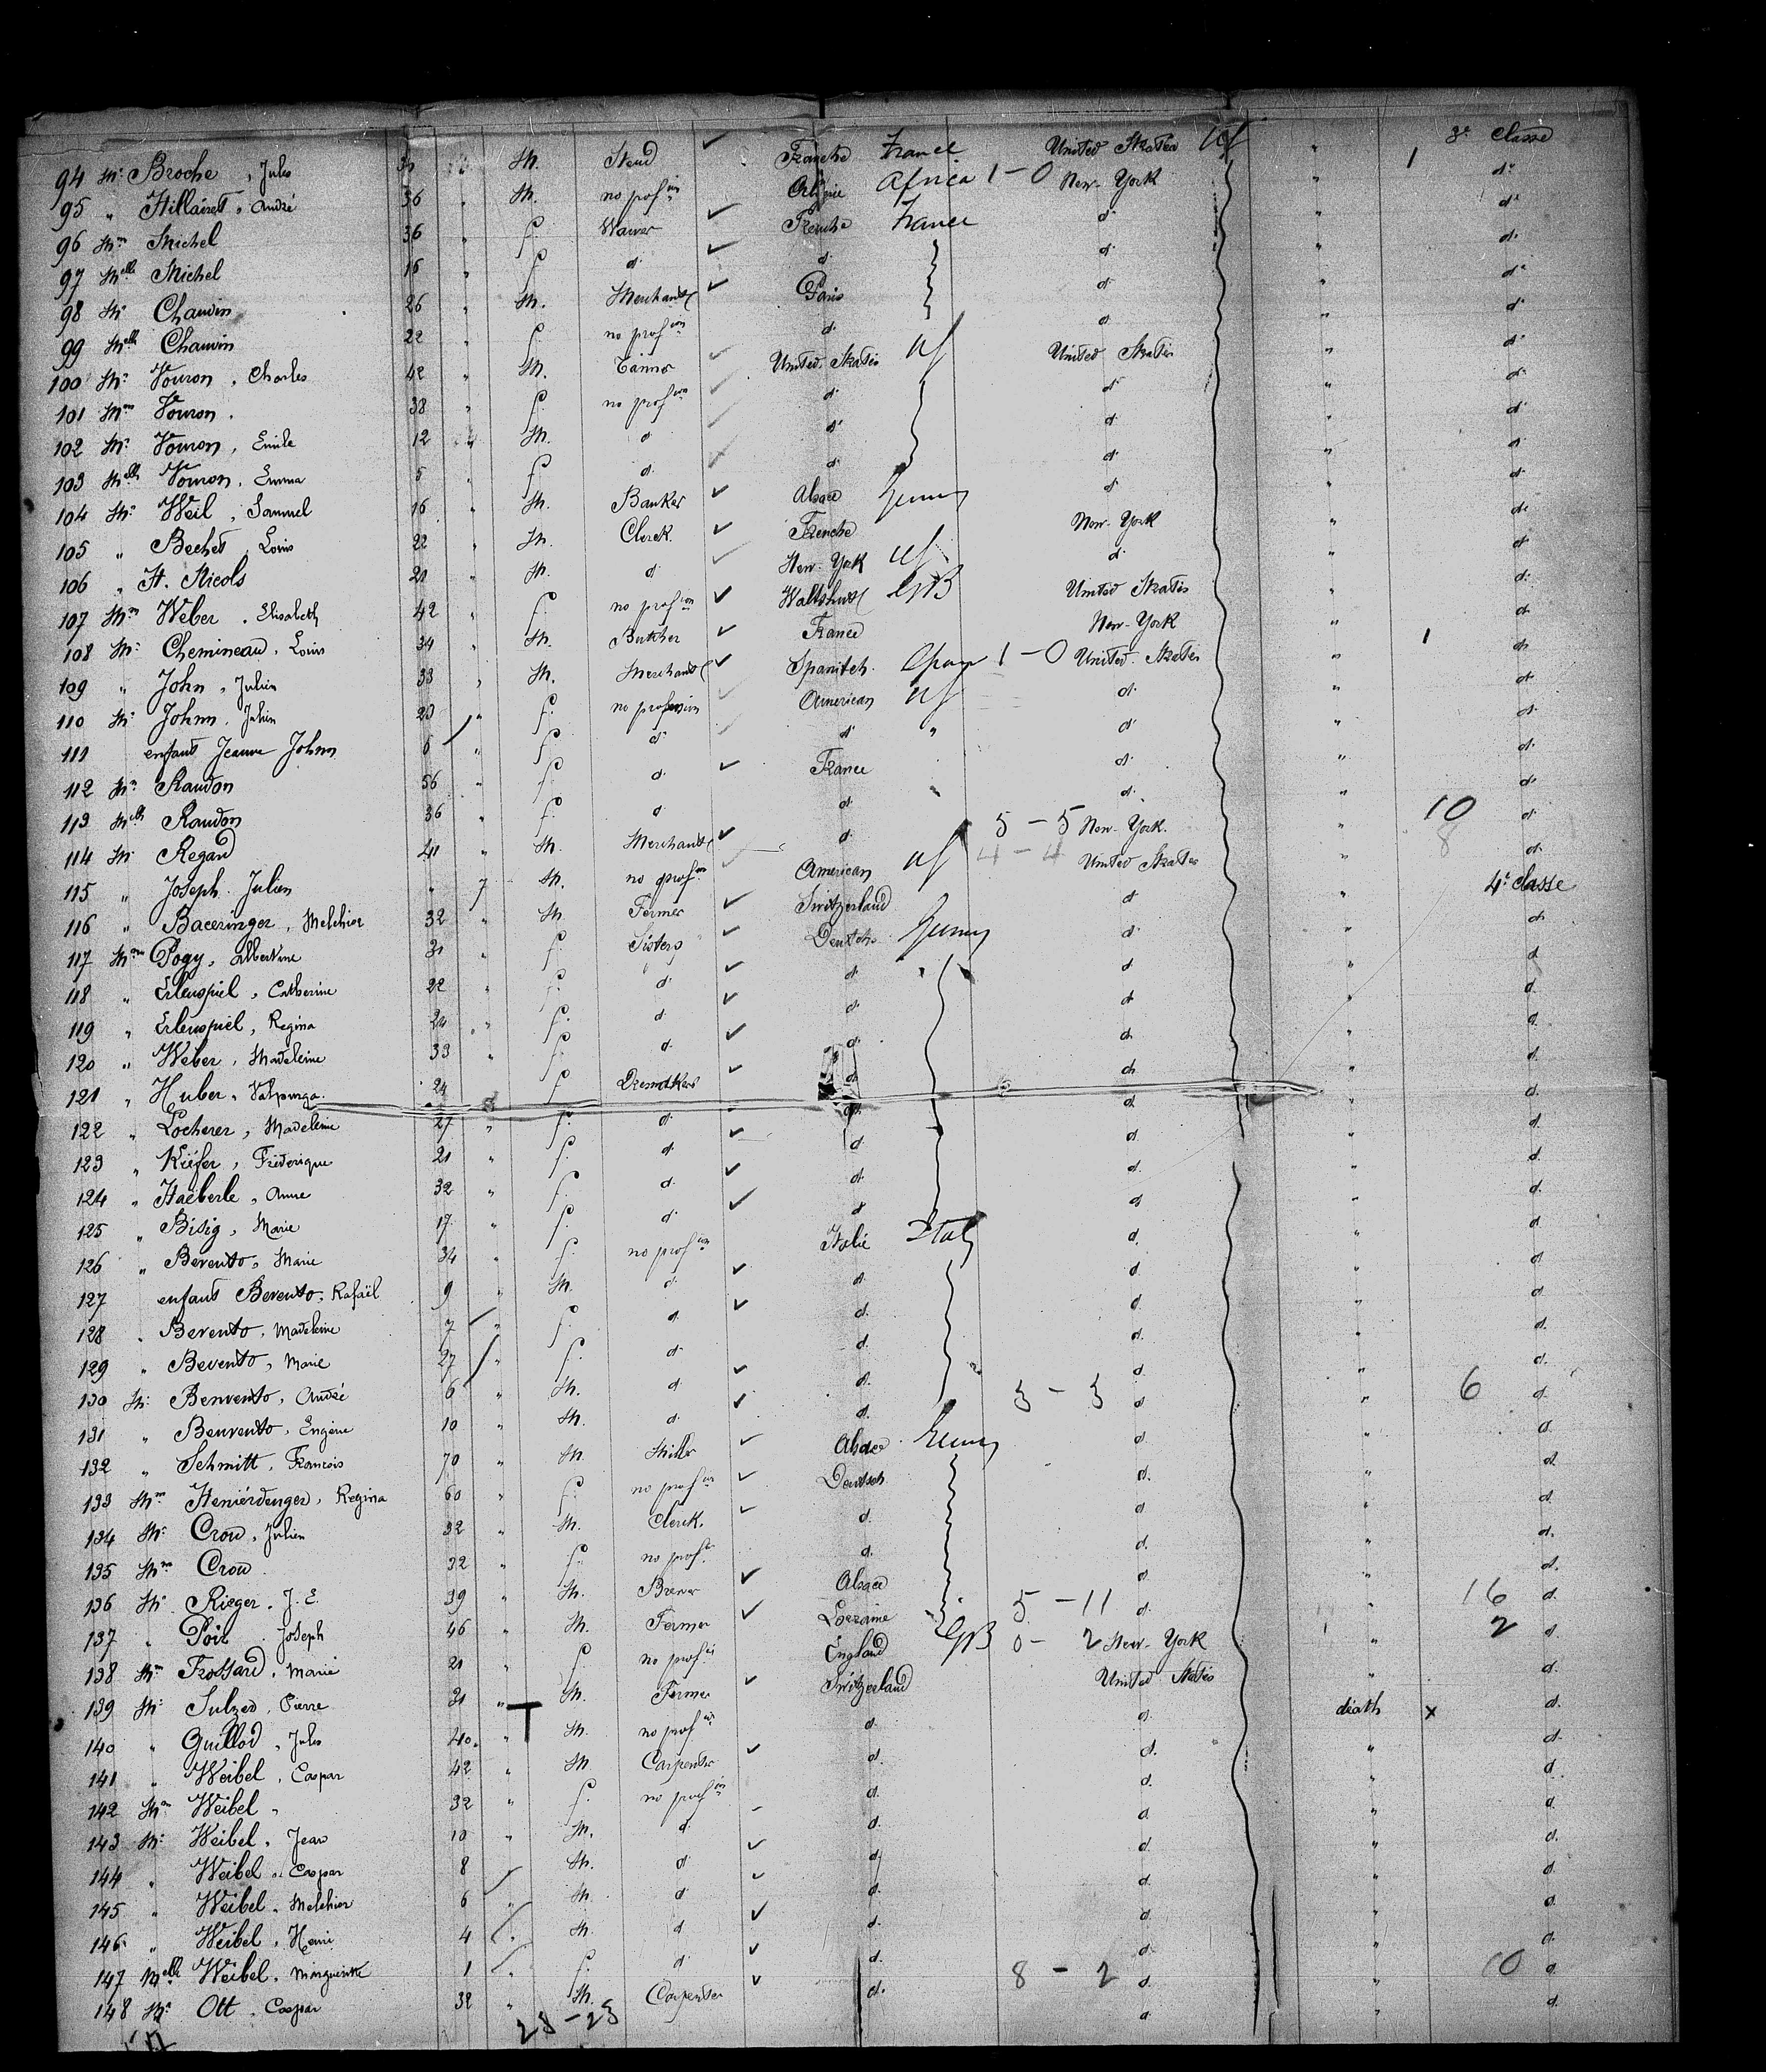 3e Classe
94 Mr Broche, Jules M. France United States 1 do
95 " Hillairet, André 36 " M. no profion Africa 1 - 0 New-York " do
96 Mme Michel 36 " f. Frenche France d. " do
97 Melle Michel 16 " f. d. d. d. " do
98 Mr Chauvin 26 " M. Merchant Paris d. " do
99 Melle Chauvin 22 " f. no profion d. d. " do
100 Mr Vouron, Charles 42 " M. Tanner United States US United States " do
101 Mme Vouron. 38 " f. no profion d. d. " do
102 Mr Vouron, Emile 12 " M. d. d. d. " do
103 Melle Vouron, Emma 5 " f. d. d. d. " d.
104 Mr Weil, Samuel 16 " M. Banker Alsace Germy d. " d.
105 " Bechet, Louis 22 " M. Clerck. Frenche New-York " d.
106 " H. Nicols 21 " M. d. New-York US d. " d.
107 Mme Weber, Elisabeth 42 " f. no profion GB United States " d.
108 Mr Chemineau, Louis 34 " M. Butcher France New-York " 1 d.
109 " John, Julien 33 " M. Merchant Spanitch. Spain 1 - 0 United States " d.
110 Johnn, Julien 23 " f. no profession American US d. " d.
111 enfant Jeanne Johnn 6 " f. d. d. " d. " d.
112 Raudon 56 " f. d. France d. " d.
113 Melle Raudon 36 " f. d. d. d. " 10 d.
114 Mr Regard 41 " M. Merchant d. 5 - 5 New-York. " 8 d.
115 " Joseph Julien " 7 M. no profion American US 4 - 4 United States " 4e Classe
116 " Baceringer, Melchior 32 " M. Fermer Switzerland d. " d.
117 Mme Pogy, Albertine 31 " f. Sisters Deutch Germy d. " d.
118 " Erlenspiel, Catherine 22 " f. d. d. d. " d.
119 " Erlenspiel, Regina 24 " f. d. d. d. " d.
120 " Weber, Madeleine 33 " f. d. d. d. " d.
121 " Huber, Valpurga. 24 " f. d. d. " d.
122 " Locherer, Madeleine 27 " f. d. d. d. " d.
123 " Kiéfer, Fréderique 21 " f. d. d. d. " d.
124 " Haéberle, Anne 32 " f. d. d. d. " d.
125 " Bisig, Marie 17 " f. d. d. d. " d.
126 " Bevento, Marie 34 " f. no profion Italie Italy d. " d.
127 enfant Bevento, Rafaël 9 " M. d. d. d. " d.
128 " Bevento, Madeleine 7 " f. d. d. d. " d.
129 " Bevento, Marie 27 " f. d. d. d. " d.
130 Mr Benvento, André 6 " M. d. d. 3 - 3 d. " 6 d.
131 " Benvento, Engène 10 " M. d. d. d. " d.
132 " Schmitt, Francois 70 " M. Miller Alsace Germy d. " d.
133 Mme Heniérdenger, Regina 60 " f. no profion Deutsch d. " d.
134 Mr Crow, Julien 32 " M. Clerck. d. d. " d.
135 Mme Crow 32 " f. no profn d. d. " d.
136 Mr Rieger, J. E. 39 " M. Brewer Alsace 5 - 11 d. " 16 d.
137 " Poir Joseph 46 " M. Fermer Lorraine d. " 2 d.
138 Mme Frossard, Marie 21 " f. no profn England GB 0 - 2 New-York " d.
139 Mr Sulzer, Pierre 31 " M. Fermer Switzerland United States " d.
140 " Guillod, Jules 40 " T M. no profion d. d. death x d.
141 " Weibel, Caspar 42 " M. Carpenter d. d. " d.
142 Mme Weibel " 32 " f. no profion d. d. " d.
143 Mr Weibel, Jean 10 " M. d. d. d. " d.
144 " Weibel, Caspar 8 M. d. d. d. " d.
145 " Weibel, Melchior 6 " M. d. d. d. " d.
146 " Weibel, Henri 4 " M. d. d. d. " d.
147 Melle Weibel, Margueritte 1 " f. d. d. 8 - 2 d. " 10 d.
148 Mr Ott, Caspar 32 " M. Carpenter d. d. " d.
23 - 23